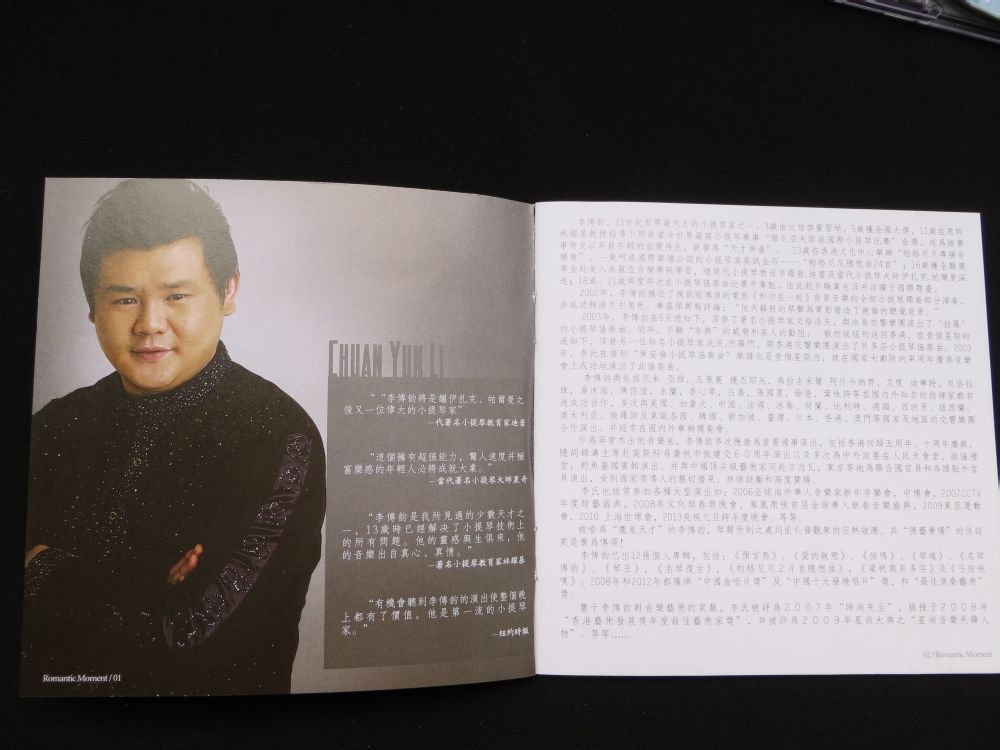 CHUAN YUN LI
““李傳韵將是繼伊扎克．帕爾曼之
後又一位偉大的小提琴家”
—代著名小提琴教育家迪蕾
“這個擁有超强能力，驚人速度并極
富樂感的年輕人必將成就大業。”
—當代著名小提琴大師里奇
“李傳韵是我所見過的少數天才之
一，13歲時已經解决了小提琴技術上
的所有問題。他的靈感與生俱來，他
的音樂出自真心、真情。”
—著名小提琴教育家林耀基
“有機會聽到李傳韵的演出使整個晚
上都有了價值。他是第一流的小提琴
家。”
—紐約時報
Romantic Moment / 01
李傳韵，21世紀世界最天才的小提琴家之一，3歲由父母啓蒙習琴，5歲獲全國大獎，11歲在恩師
林耀基教授指導下問鼎當今世界最高小提琴賽事“維尼亞夫斯基國際小提琴比賽”金獎，成爲該賽
事有史以來最年輕的金獎得主，被譽爲“天才神童”。13歲在香港文化中心舉辦“帕格尼尼專場音
樂會”，一氣呵成國際樂壇公認的小提琴演奏試金石——“帕格尼尼隨想曲24首”；16歲獲全額獎
學金赴美入朱麗亞音樂學院學習，隨現代小提琴教母多羅茜.迪蕾及當代小提琴大師伊扎克.帕爾曼深
造；18歲、21歲兩度再次在小提琴協奏曲比賽中奪魁。由此起步職業生涯并活躍于國際舞臺。
2002年，李傳韵擔任了陳凱歌導演的電影《和你在一起》背景音樂的全部小提琴獨奏部分演奏，
并成功飾演片中角色，華盛頓郵報評論：“他天籟般的琴聲爲電影營造了絶倫的聽覺背景。”
2003年，李傳韵在5天通知下，頂替了著名小提琴家文格洛夫，與冰島交響樂團演出了“拉羅”
的小提琴協奏曲。同年，不顧“非典”的威脅和家人的勸阻，毅然從紐約返回香港，在壹個星期的
通知下，頂替另一位知名小提琴家瓦汶.所羅門，與香港交響樂團演出了貝多芬小提琴協奏曲。2009
年，李氏在接到“黄安倫小提琴協奏曲”樂譜也是壹個星期内，就在國家大劇院的兩周年慶典音樂
會上成功地演出了此協奏曲。
成功合作，多次與美國、加拿大、中國、法國、冰島、荷蘭、比利時、德國、西班牙、紐西蘭、
澳大利亞，俄羅斯及東歐各國，韓國、新加坡、臺灣、日本、香港、澳門等國家及地區的交響樂團
合作演出。并經常在國内外舉辦獨奏會。
作爲异常杰出的音樂家，李傳韵多次應邀爲重要國事演出，包括香港回歸五周年、十周年慶典，
隨胡錦濤主席赴莫斯科爲慶祝中俄建交60周年演出以及多次爲中外政要在人民大會堂、政協禮
堂，釣魚臺國賓館演出。并與中國頂尖級藝術家同赴日内瓦，東京等地爲聯合國官員和各國駐外官
員演出，受到國家領導人的親切接見，熱情鼓勵和高度贊揚。
李氏也經常參加各種大型演出如：2006全球海外華人音樂家新年音樂會，中博會，2007CCTV
年度綜藝盛典，2008年文化部春節晚會，鳳凰衛視首届全球華人新春音樂盛典，2009東亞運動
會，2010 上海世博會，2013央視元旦跨年度晚會。等等。
被喻爲“魔鬼天才”的李傳韵，琴聲所到之處均能引發觀衆的狂熱效應。其“億藝乗儀”的佳話
更是廣爲傳頌！
李傳韵已出12張個人專輯，包括：《預言鳥》、《愛的致意》、《弦鳴》、《琴魂》、《名琴
傳韵》、《琴王》，《名琴復古》，《帕格尼尼24首隨想曲》，《梁祝與貝多芬》及《弓弦咏
嘆》。2008年和2012年都獲頒“中國金唱片獎”及“中國十大發燒唱片”獎，和“最佳演奏藝術”
獎。
鑒于李傳韵對音樂藝術的貢獻，李氏被評爲2007年“時尚先生”，被授予2008年
“香港藝術發展獎年度最佳藝術家獎”，并被評爲2009年星尚大典之“星尚音樂先鋒人
物”。等等......
02 / Romantic Moment